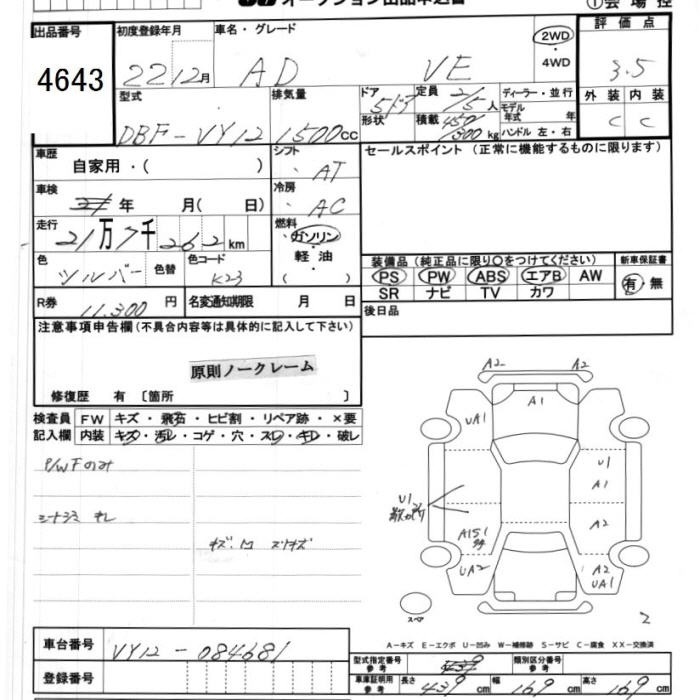 オークション出品申込書 ①会場控
出品番号 初度登録年月 車名・グレード 評価点
4643 22 12月 AD VE 2WD・4WD 3.5
型式 排気量 ドア 定員 ディーラー・並行 外装 内装
DBF-VY12 1500cc 5ドア 2/5人 モデル年式 年 C C
形状 積載 450/300kg ハンドル 左・右
車歴 自家用・( ) シフト AT セールスポイント (正常に機能するものに限ります)
車検 年 月( 日) 冷房 AC
走行 21万7千262km 燃料 ガソリン・軽油・( )
色 シルバー 色替 色コード K23 装備品(純正品に限り〇をつけてください) 新車保証書
PS PW ABS エアB AW 有・無
SR ナビ TV カワ
R券 11.300円 名変通知期限 月 日 後日品
注意事項申告欄(不具合内容等は具体的に記入して下さい)
原則ノークレーム
修復歴 有 〔箇所 〕
検査員 FW キズ・飛石・ヒビ割・リペア跡・×要
記入欄 内装 キズ・汚レ・コゲ・穴・スレ・キレ・破レ
P/WFのみ
シートシミ キレ
キズ・凹 スリキズ
A2 A2
A1
UA1
U1
A1
U1
A2
A151
UA2
A2
UA1
スペア
2
A-キズ E-エクボ U-凹み W-補修跡 S-サビ C-腐食 XX-交換済
車台番号 VY12-084681
登録番号
型式指定番号参考 類別区分番号
車庫証明用参考 長さ 439cm 幅 169cm 高さ 169cm